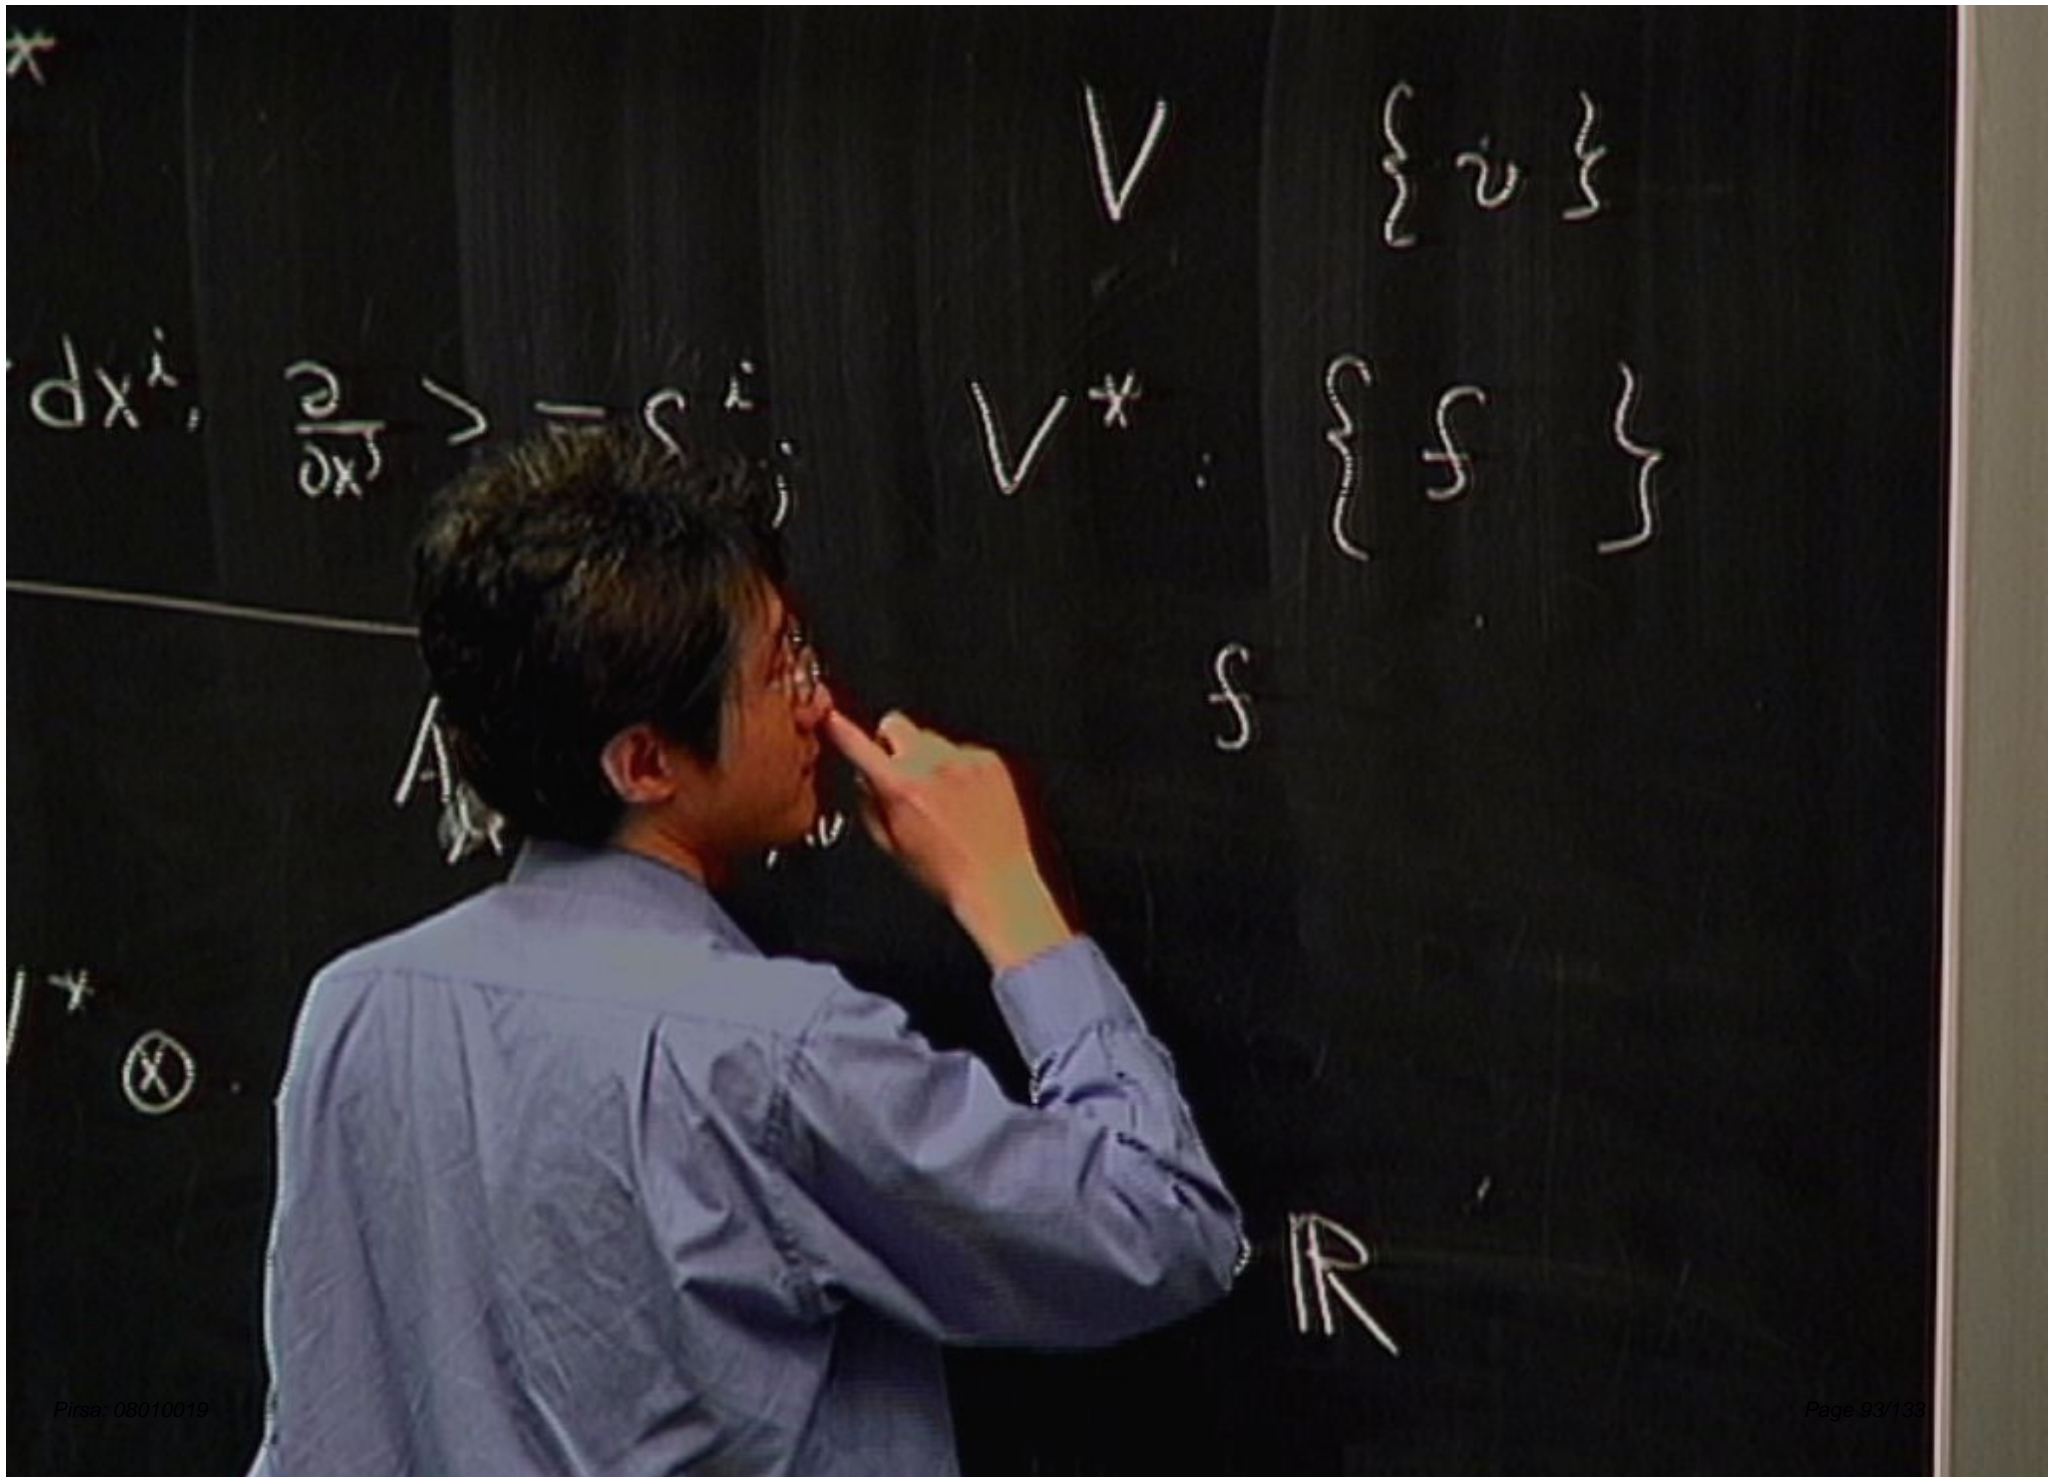 *
V { v }
dx^i, ∂/∂x^j > = δ^i_j
V* : { f }
f
A
V* ⊗ .
ℝ
Pirsa: 08010019
Page 93/133